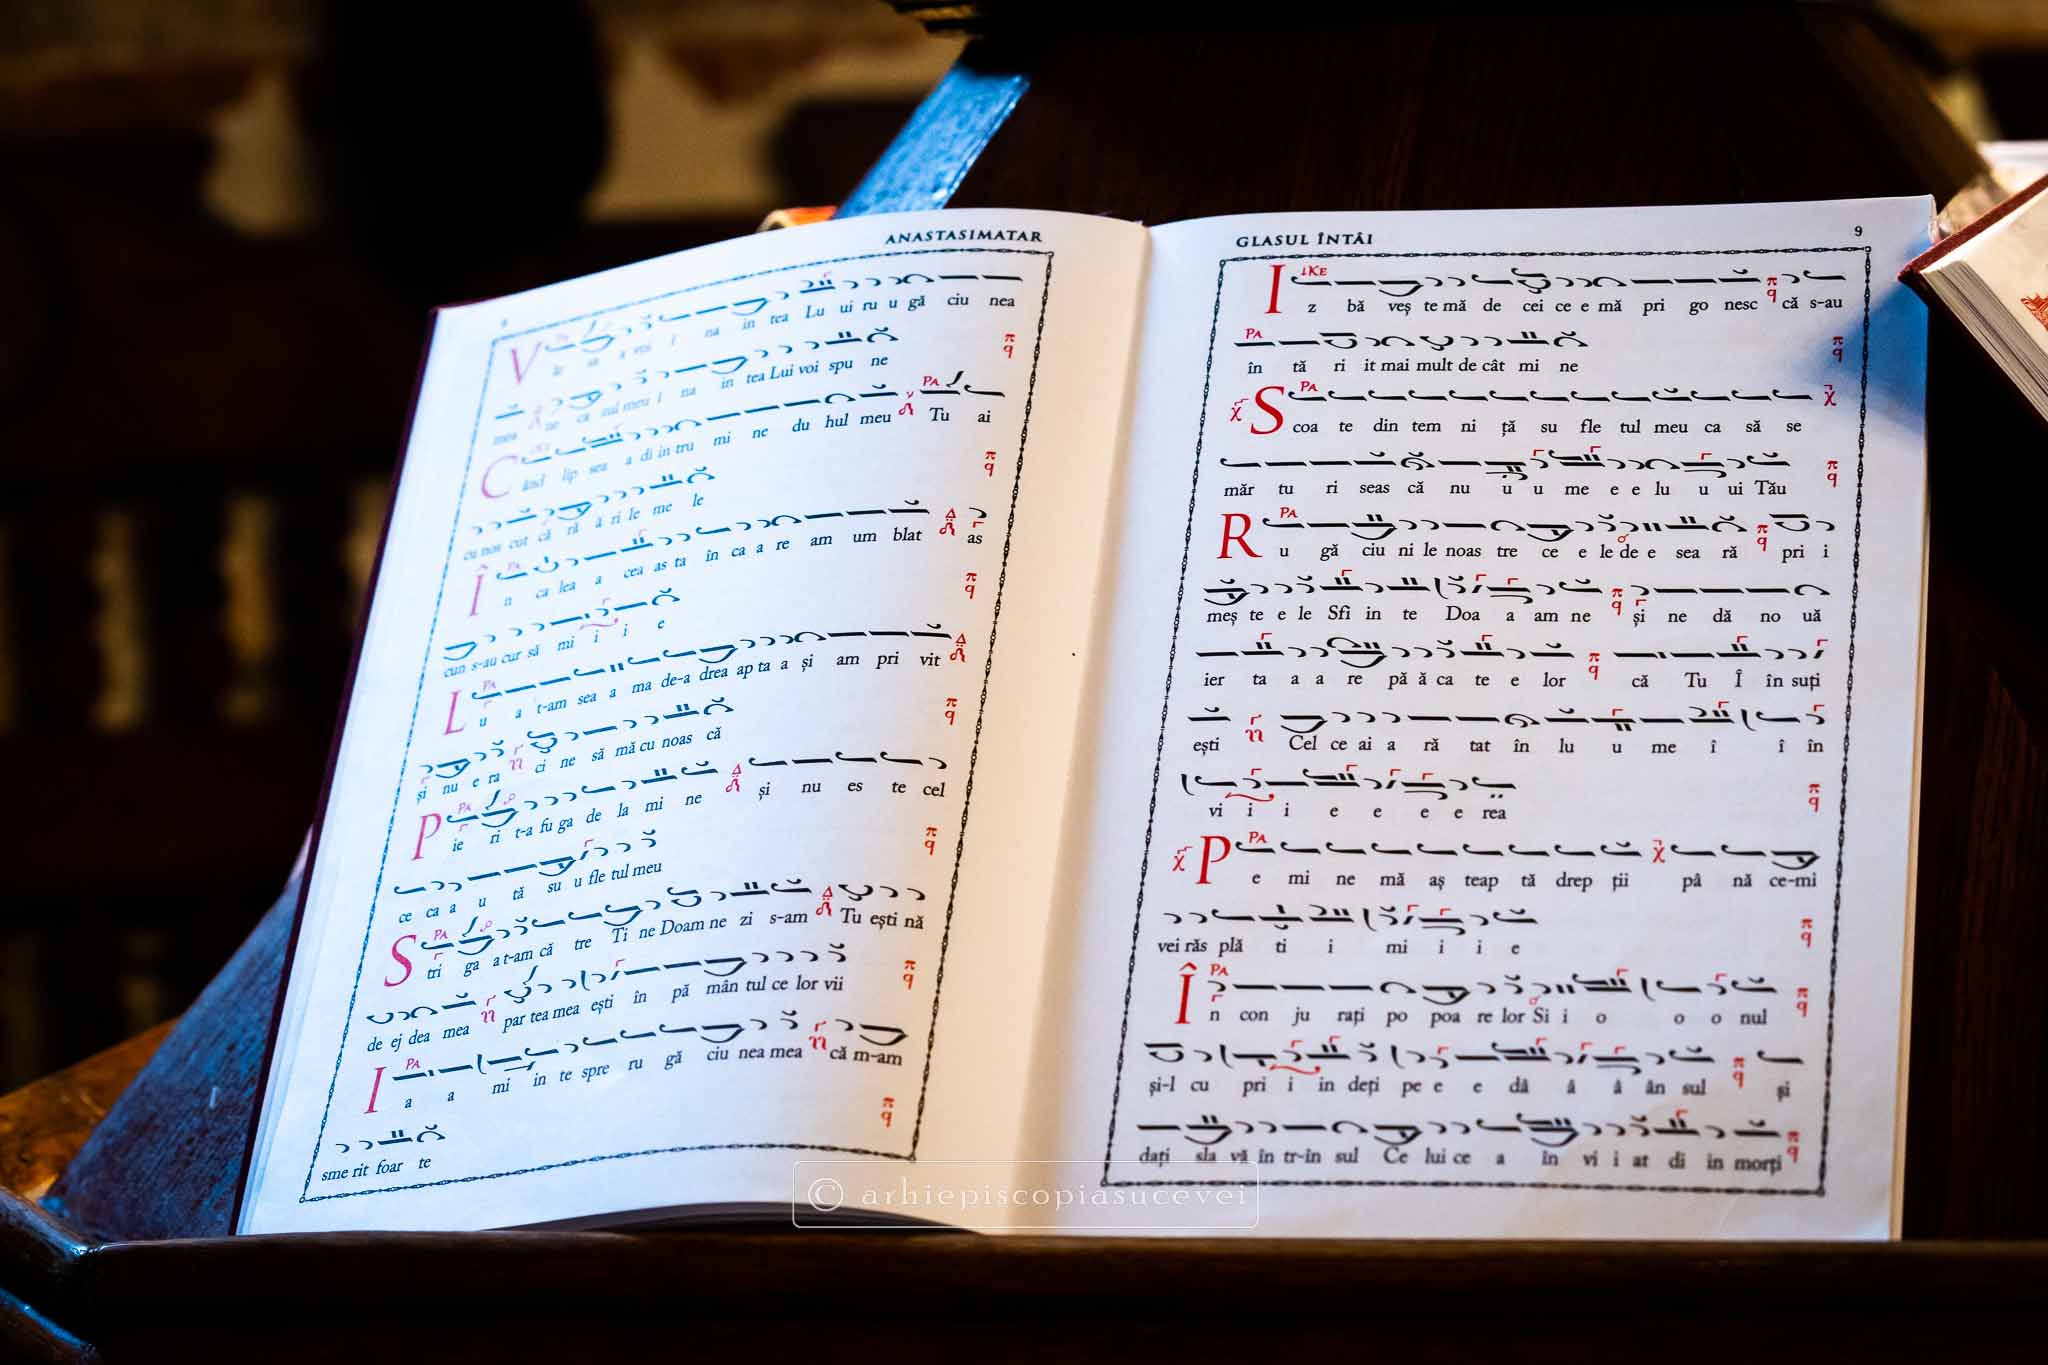 ANASTASIMATAR
8
Văr sa a voi i na in tea Lu ui ru u gă ciu nea
mea ne ca zul meu i na in tea Lui voi spu ne
Când lip sea a di in tru mi ne du hul meu Tu ai
cu nos cut că ră ă ri le me le
În ca lea a cea as ta în ca a re am um blat as
cun s-au cur să mi i i e
Lu u a t-am sea a ma de-a drea ap ta a și am pri vit
și nu e ra ci ne să mă cu noas că
Pie ri t-a fu ga de la mi ne și nu es te cel
ce ca a u tă su u fle tul meu
Stri ga a t-am că tre Ti ne Doam ne zi s-am Tu ești nă
de ej dea mea par tea mea ești în pă mân tul ce lor vii
Ia a mi in te spre ru gă ciu nea mea că m-am
sme rit foar te
GLASUL ÎNTÂI
9
KE
Iz bă veș te mă de cei ce e mă pri go nesc că s-au
PA
în tă ri it mai mult de cât mi ne
PA
Scoa te din tem ni ță su fle tul meu ca să se
măr tu ri seas că nu u u me e e lu u ui Tău
PA
Ru gă ciu ni le noas tre ce e le de e sea ră pri i
meș te e le Sfi in te Doa a am ne și ne dă no uă
ier ta a a re pă ă ca te e lor că Tu Î în suți
ești Cel ce ai a ră tat în lu u me î î în
vi i i e e e e rea
PA
Pe mi ne mă aș teap tă drep ții pâ nă ce-mi
vei răs plă ti i mi i i e
PA
În con ju rați po poa re lor Si i o o o nul
și-l cu pri i in deți pe e e dâ â â ân sul și
dați sla vă în tr-în sul Ce lui ce a în vi i at di in morți
© arhiepiscopiasucevei